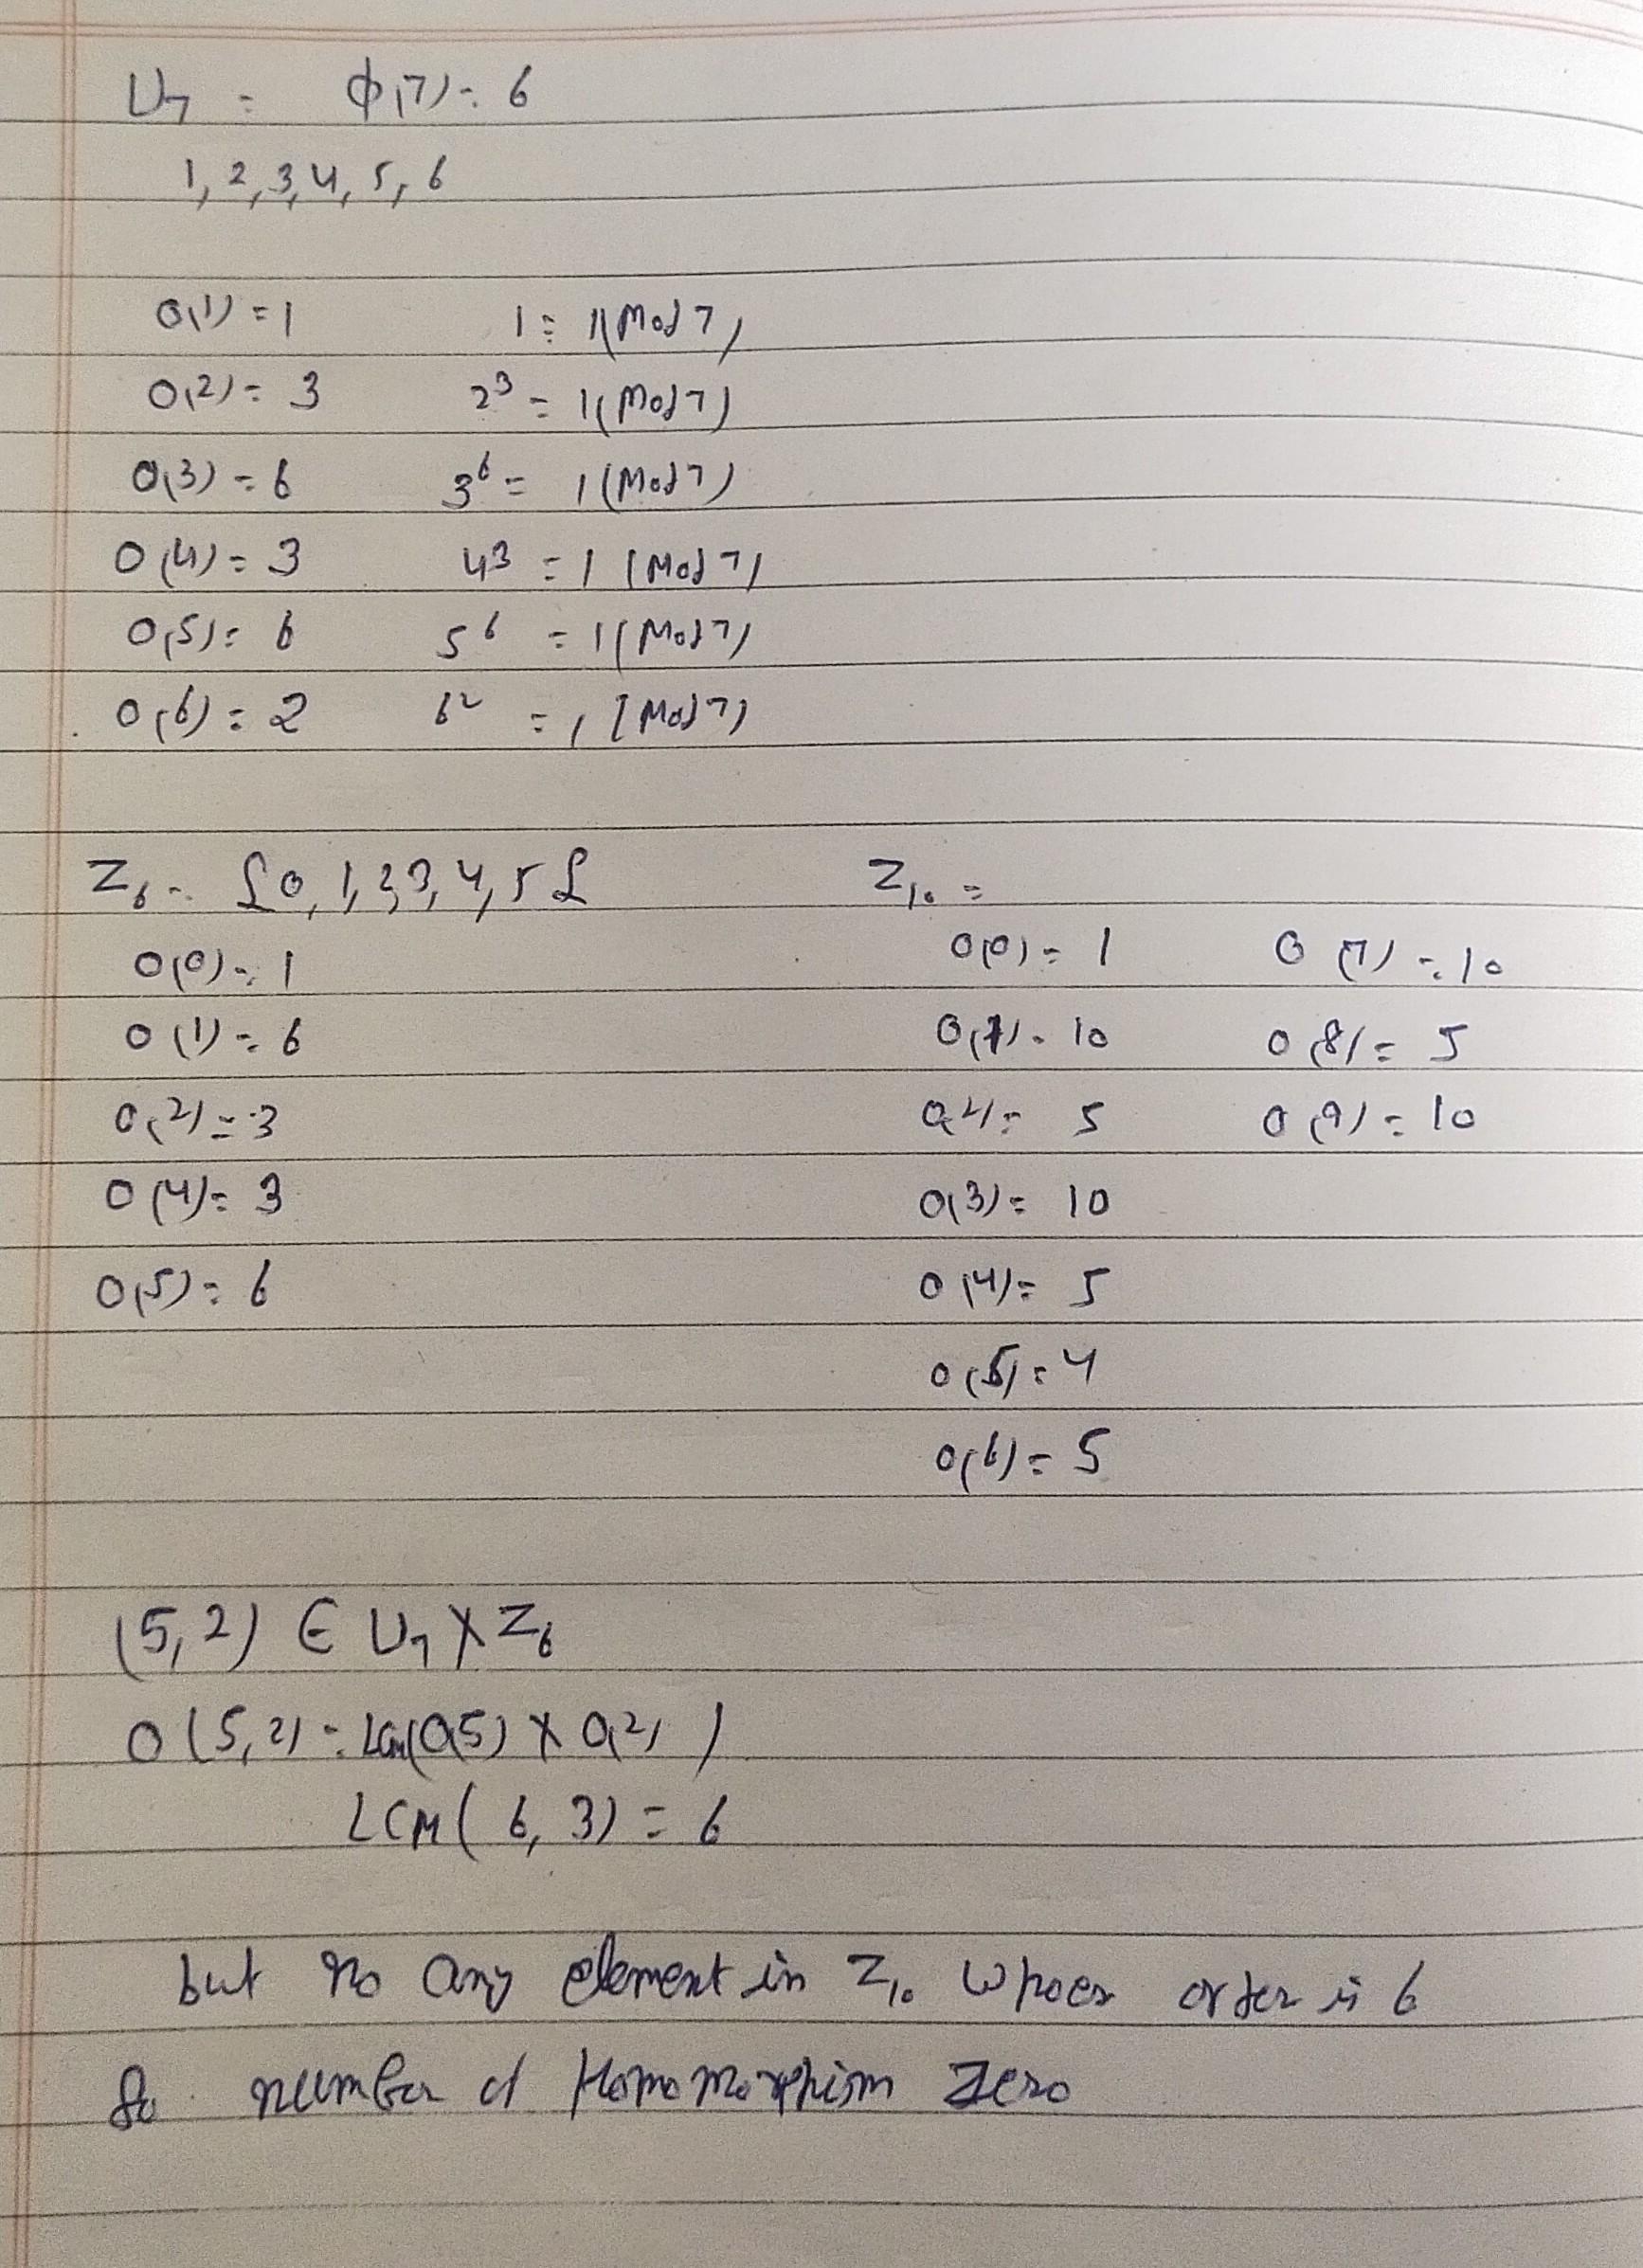 U₇ = φ(7) = 6
1, 2, 3, 4, 5, 6
O(1) = 1 1 = 1(Mod 7)
O(2) = 3 2³ = 1(Mod 7)
O(3) = 6 3⁶ = 1(Mod 7)
O(4) = 3 4³ = 1 (Mod 7)
O(5) = 6 5⁶ = 1(Mod 7)
O(6) = 2 6² = 1 [Mod 7)
Z₆ = {0, 1, 2, 3, 4, 5} Z₁₀ =
O(0) = 1 O(0) = 1 O(7) = 10
O(1) = 6 O(1) = 10 O(8) = 5
O(2) = 3 O(2) = 5 O(9) = 10
O(4) = 3 O(3) = 10
O(5) = 6 O(4) = 5
O(5) = 4
O(6) = 5
(5, 2) ∈ U₇ X Z₆
O(5, 2) = LCM(O(5) X O(2))
LCM( 6, 3) = 6
but no any element in Z₁₀ order is 6
So number of Homomorphism Zero